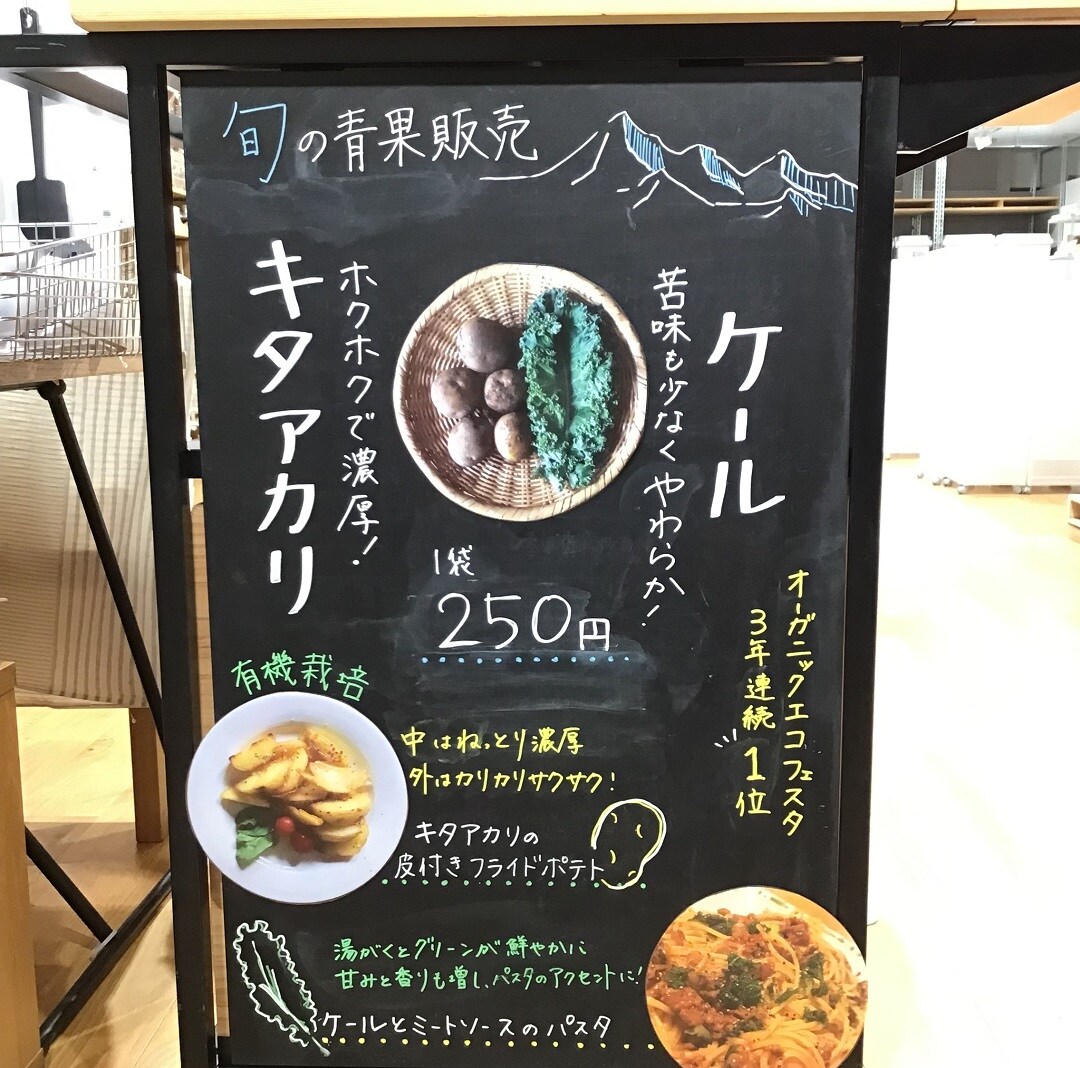 旬の青果販売
ケール
苦味も少なくやわらか！
キタアカリ
ホクホクで濃厚！
1袋
250円
オーガニックエコフェスタ
3年連続1位
有機栽培
中はねっとり濃厚
外はカリカリサクサク！
キタアカリの
皮付きフライドポテト
湯がくとグリーンが鮮やかに
甘みと香りも増し、パスタのアクセントに！
ケールとミートソースのパスタ